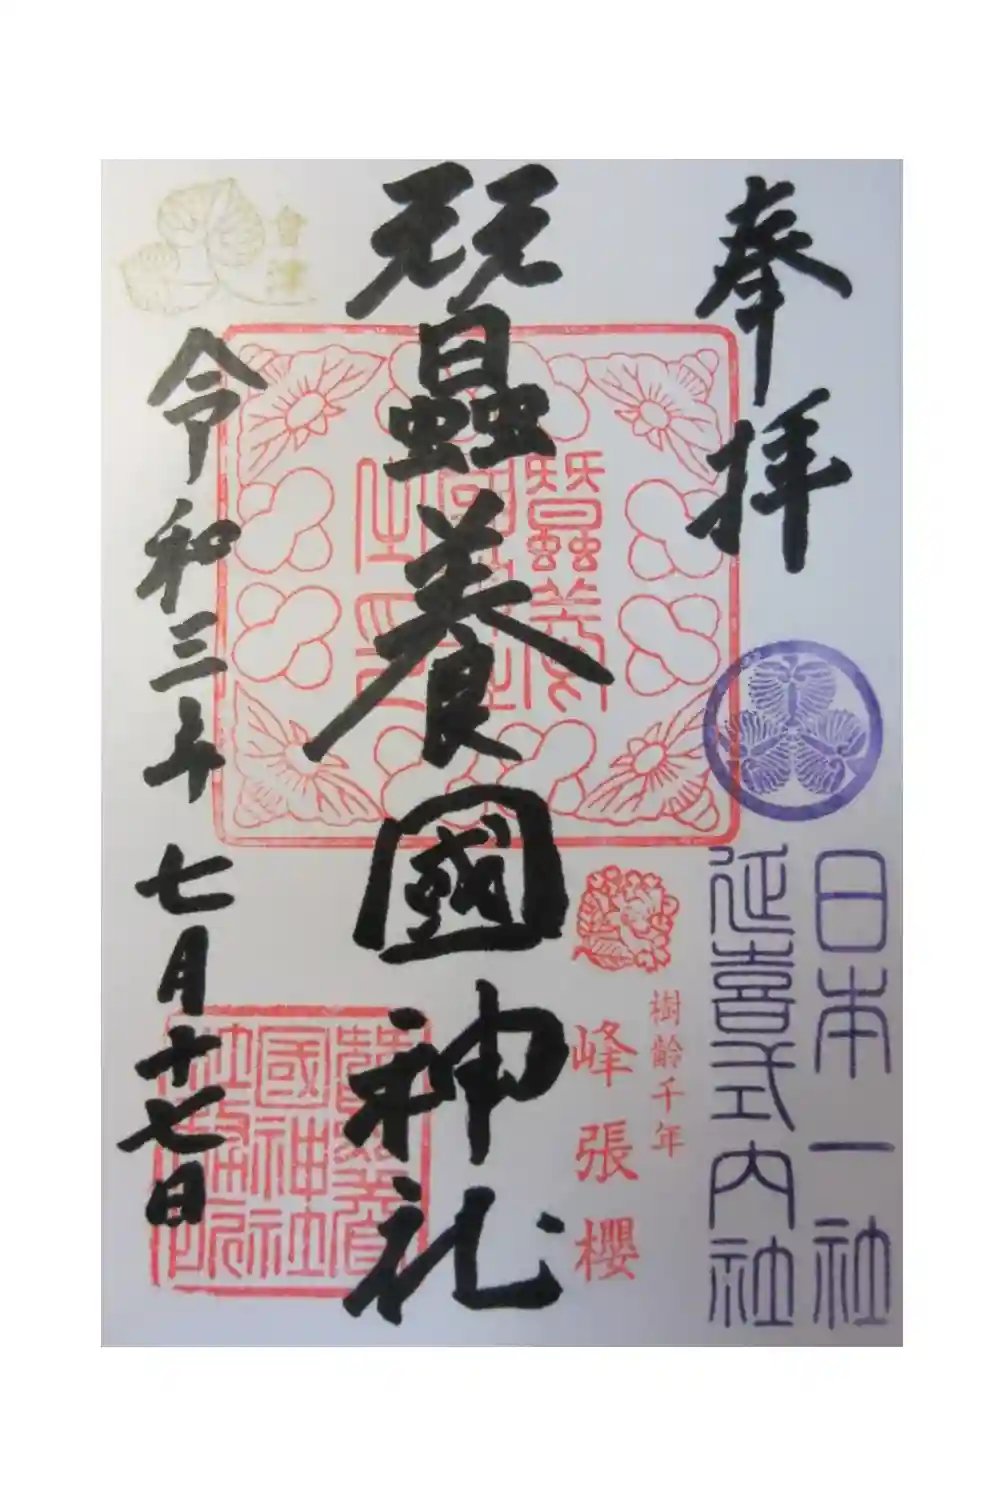 奉拝
日本一社
延喜式内社
樹齢千年
峰張櫻
蠶養國神社
令和三年七月十七日
會津
蠶養國神社之印
蠶養國神社社務所